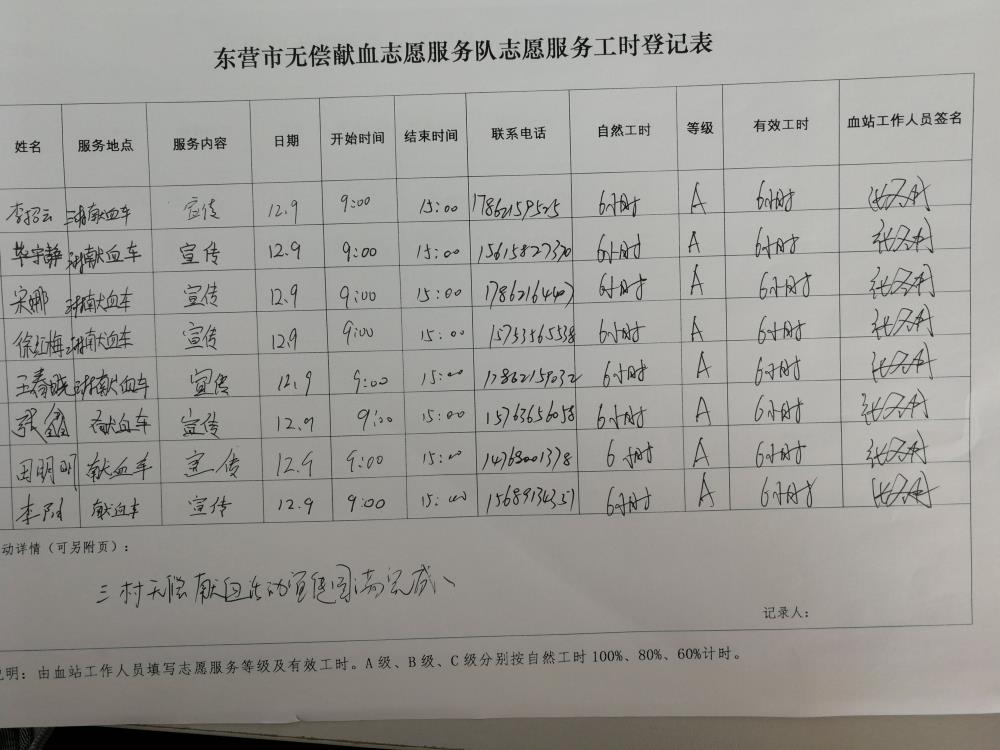 东营市无偿献血志愿服务队志愿服务工时登记表
姓名 服务地点 服务内容 日期 开始时间 结束时间 联系电话 自然工时 等级 有效工时 血站工作人员签名
李招云 三村献血车 宣传 12.9 9:00 15:00 17862159525 6小时 A 6小时
毕宇静 三村献血车 宣传 12.9 9:00 15:00 15615827370 6小时 A 6小时
宋娜 三村献血车 宣传 12.9 9:00 15:00 6小时 A 6小时
徐红梅 三村献血车 宣传 12.9 9:00 15:00 6小时 A 6小时
王春晓 三村献血车 宣传 12.9 9:00 15:00 17862159032 6小时 A 6小时
张鑫 献血车 宣传 12.9 9:00 15:00 15763656058 6小时 A 6小时
田明明 献血车 宣传 12.9 9:00 15:00 14763001378 6小时 A 6小时
献血车 宣传 12.9 9:00 15:00 6小时 A 6小时
动详情（可另附页）：
三村无偿献血活动宣传圆满完成
记录人：
说明：由血站工作人员填写志愿服务等级及有效工时。A级、B级、C级分别按自然工时100%、80%、60%计时。